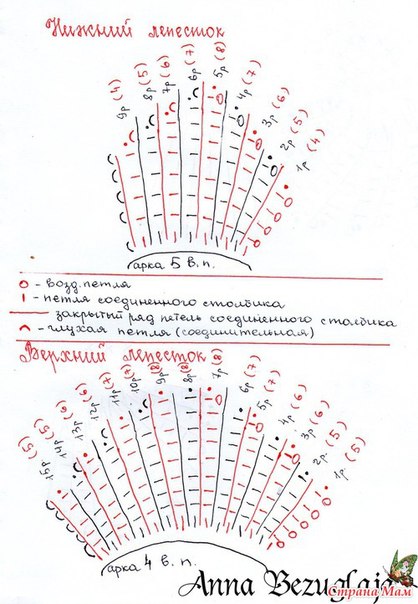 Нижний лепесток
9р (4)
8р (5)
7р (6)
6р (7)
5р (8)
4р (7)
3р (6)
2р (5)
1р (4)
арка 5 в.п.
- возд. петля
- петля соединенного столбика
закрытый ряд петель соединенного столбика
- глухая петля (соединительная)
Верхний лепесток
15р (5)
14р (5)
13р (6)
12р (6)
11р (7)
10р (7)
9р (8)
8р (8)
7р (8)
6р (7)
5р (7)
4р (6)
3р (6)
2р (5)
1р (5)
арка 4 в. п.
Anna Bezuglaja
Страна Мам